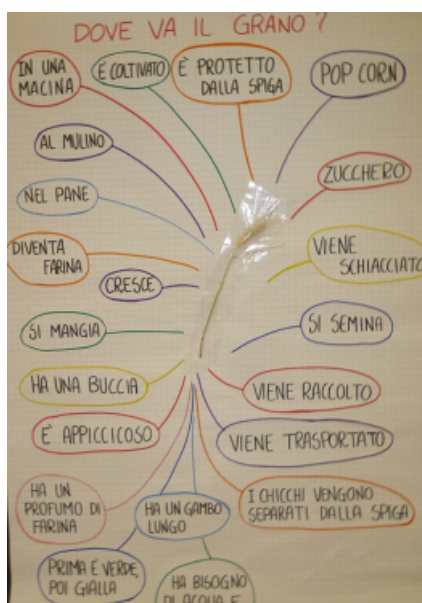 DOVE VA IL GRANO?
IN UNA
MACINA
È COLTIVATO
È PROTETTO
DALLA SPIGA
POP CORN
AL MULINO
ZUCCHERO
NEL PANE
DIVENTA
FARINA
VIENE
SCHIACCIATO
CRESCE
SI MANGIA
SI SEMINA
HA UNA BUCCIA
VIENE RACCOLTO
È APPICCICOSO
VIENE TRASPORTATO
HA UN
PROFUMO DI
FARINA
HA UN GAMBO
LUNGO
I CHICCHI VENGONO
SEPARATI DALLA SPIGA
PRIMA È VERDE,
POI GIALLA
HA BISOGNO
DI ACQUA E